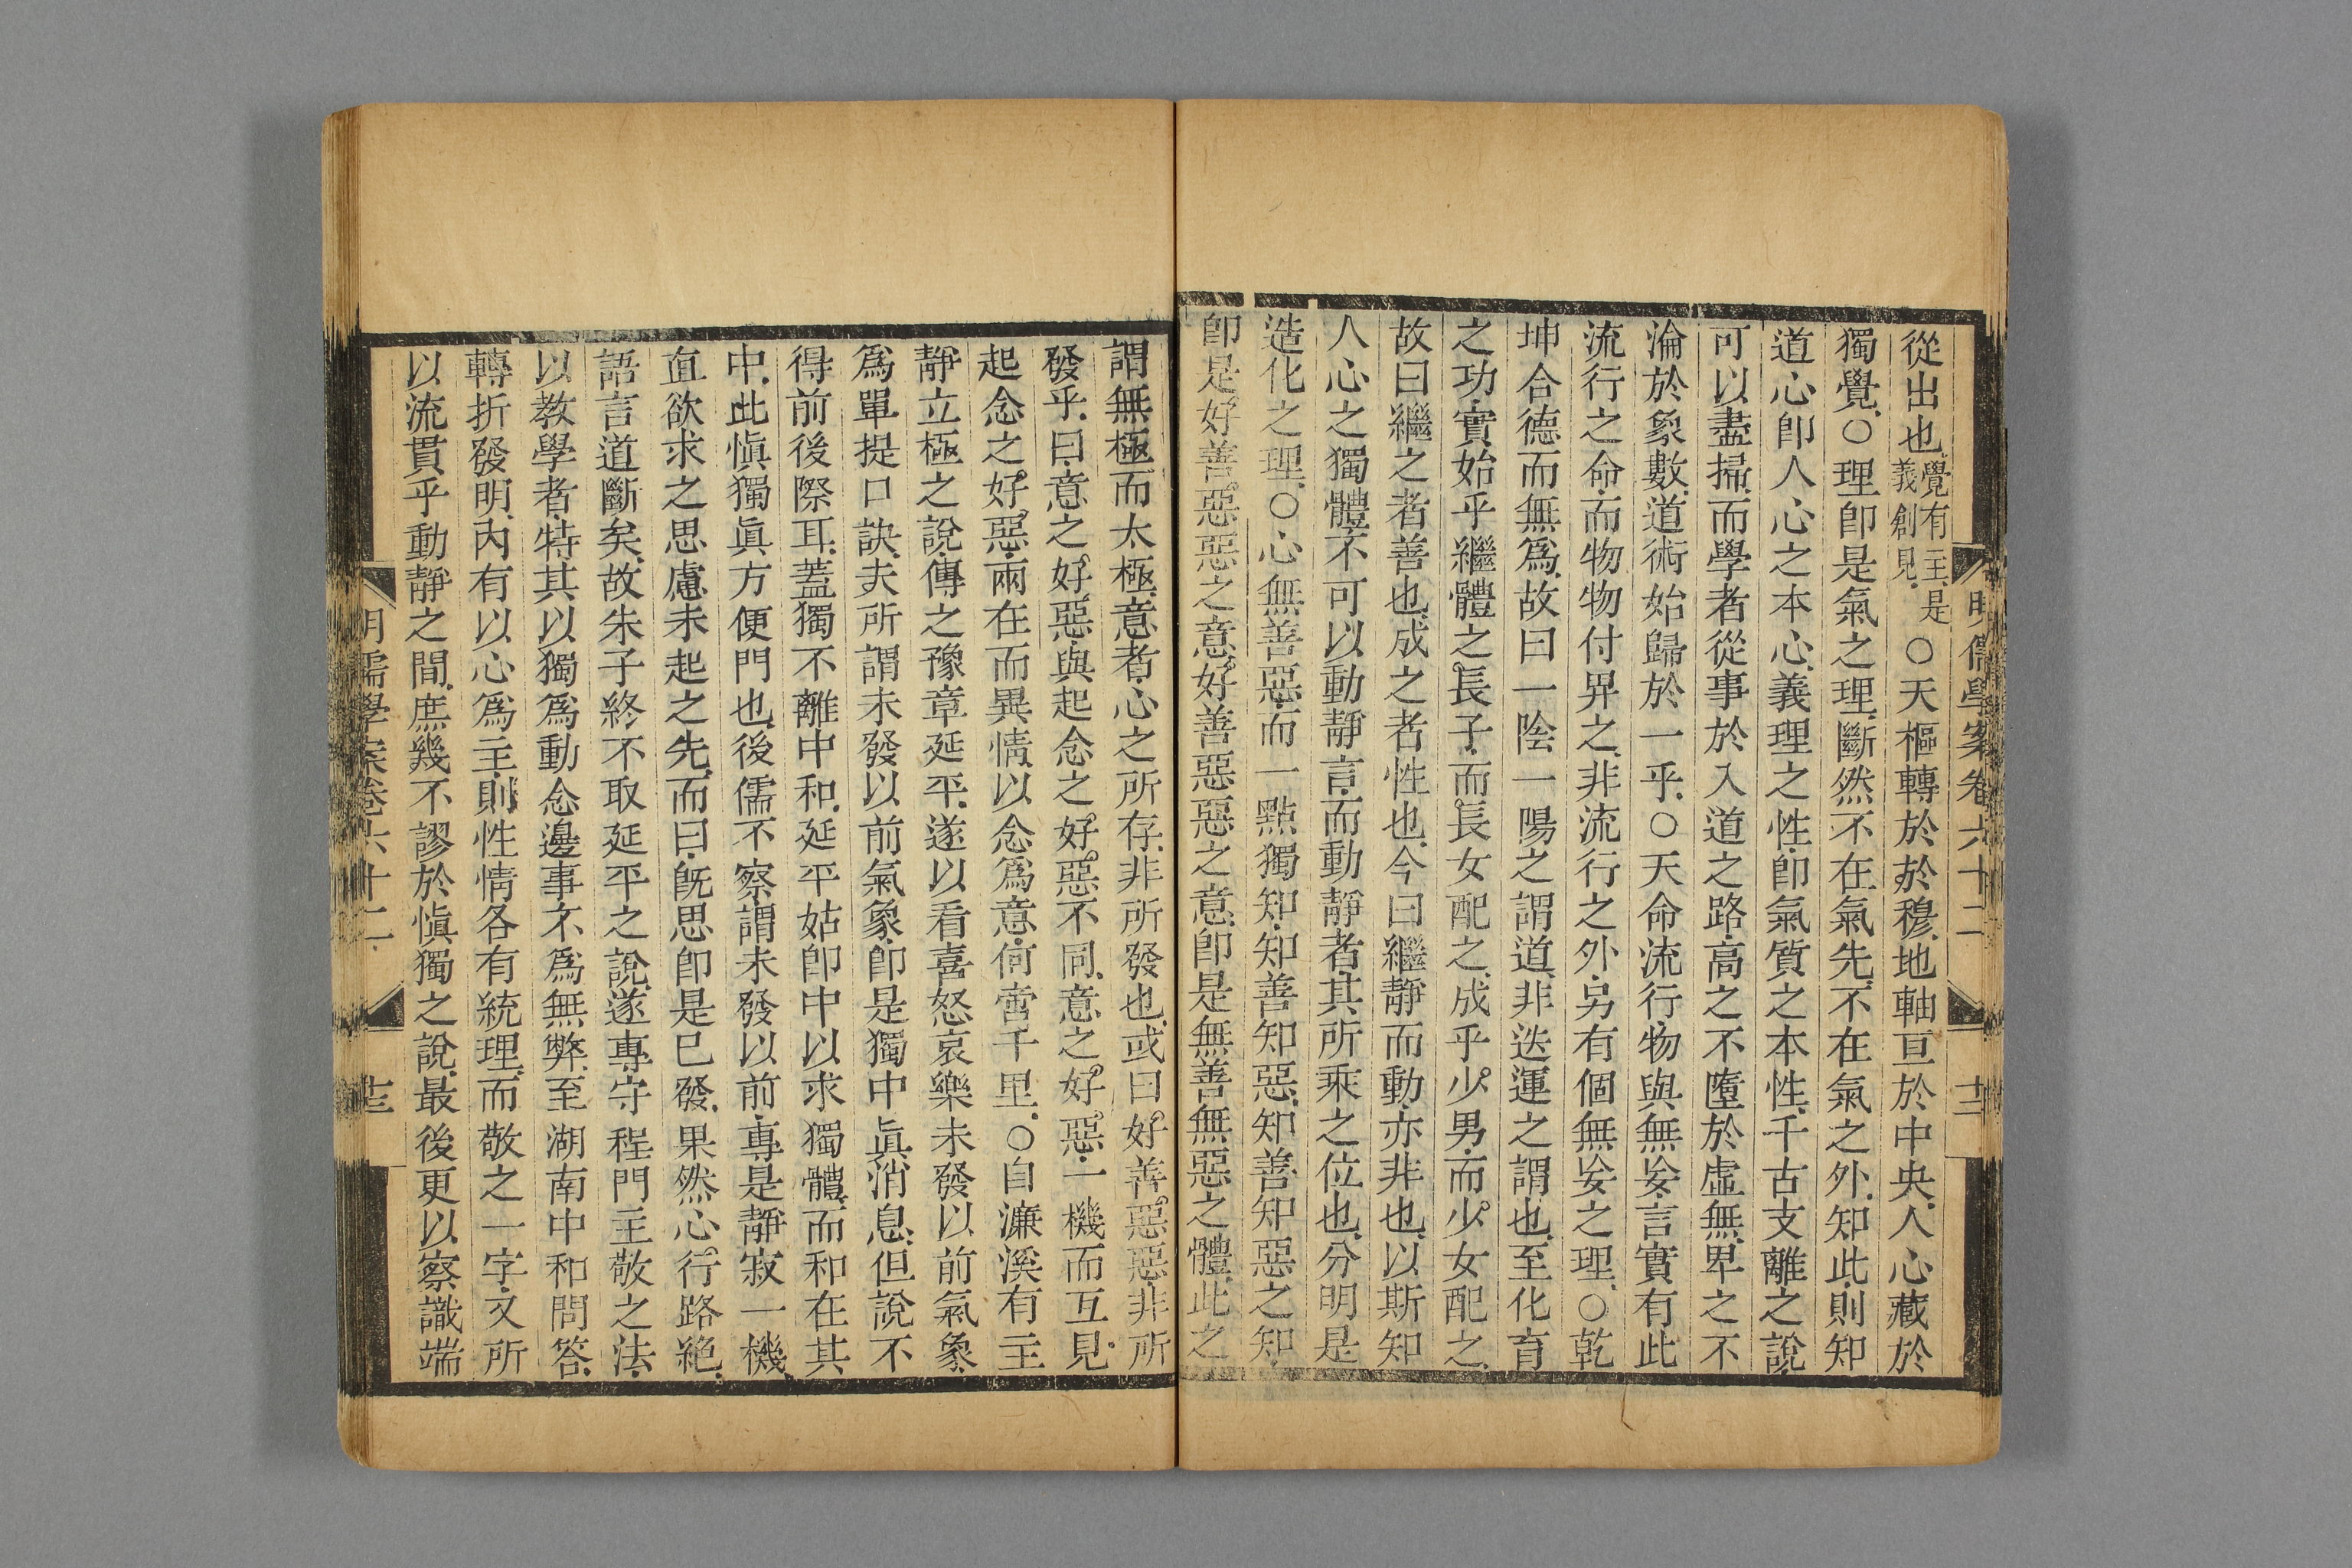 明儒學案卷六十二
從出也、覺有主、是義創見、○天樞轉於於穆、地軸亘於中央、人心藏於
獨覺、○理卽是氣之理、斷然不在氣先、不在氣之外、知此、則知
道心卽人心之本心、義理之性、卽氣質之本性、千古支離之說、
可以盡掃、而學者從事於入道之路、高之不墮於虛無、卑之不
淪於象數、道術始歸於一乎、○天命流行、物與無妄、言實有此
流行之命、而物物付畀之、非流行之外、另有個無妄之理、○乾
坤合德而無爲、故曰一陰一陽之謂道、非迭運之謂也、至化育
之功、實始乎繼體之長子、而長女配之、成乎少男、而少女配之、
故曰繼之者善也、成之者性也、今曰繼靜而動、亦非也、以斯知
人心之獨體、不可以動靜言、而動靜者、其所乘之位也、分明是
造化之理、○心無善惡、而一點獨知、知善知惡、知善知惡之知、
卽是好善惡惡之意、好善惡惡之意、卽是無善無惡之體、此之
謂無極而太極、意者、心之所存、非所發也、或曰、好善惡惡、非所
發乎、曰、意之好惡、與起念之好惡不同、意之好惡、一機而互見、
起念之好惡、兩在而異情、以念爲意、何啻千里、○自濂溪有主
靜立極之說、傳之豫章延平、遂以看喜怒哀樂未發以前氣象、
爲單提口訣、夫所謂未發以前氣象、卽是獨中眞消息、但說不
得前後際耳、蓋獨不離中和、延平姑卽中以求獨體、而和在其
中、此愼獨眞方便門也、後儒不察、謂未發以前、專是靜寂一機、
直欲求之思慮未起之先、而曰、旣思卽是已發、果然心行路絶、
語言道斷矣、故朱子終不取延平之說、遂專守程門主敬之法、
以教學者、特其以獨爲動念邊事、不爲無弊、至湖南中和問答、
轉折發明、內有以心爲主、則性情各有統理、而敬之一字、又所
以流貫乎動靜之間、庶幾不謬於愼獨之說、最後更以察識端
明儒學案卷六十二